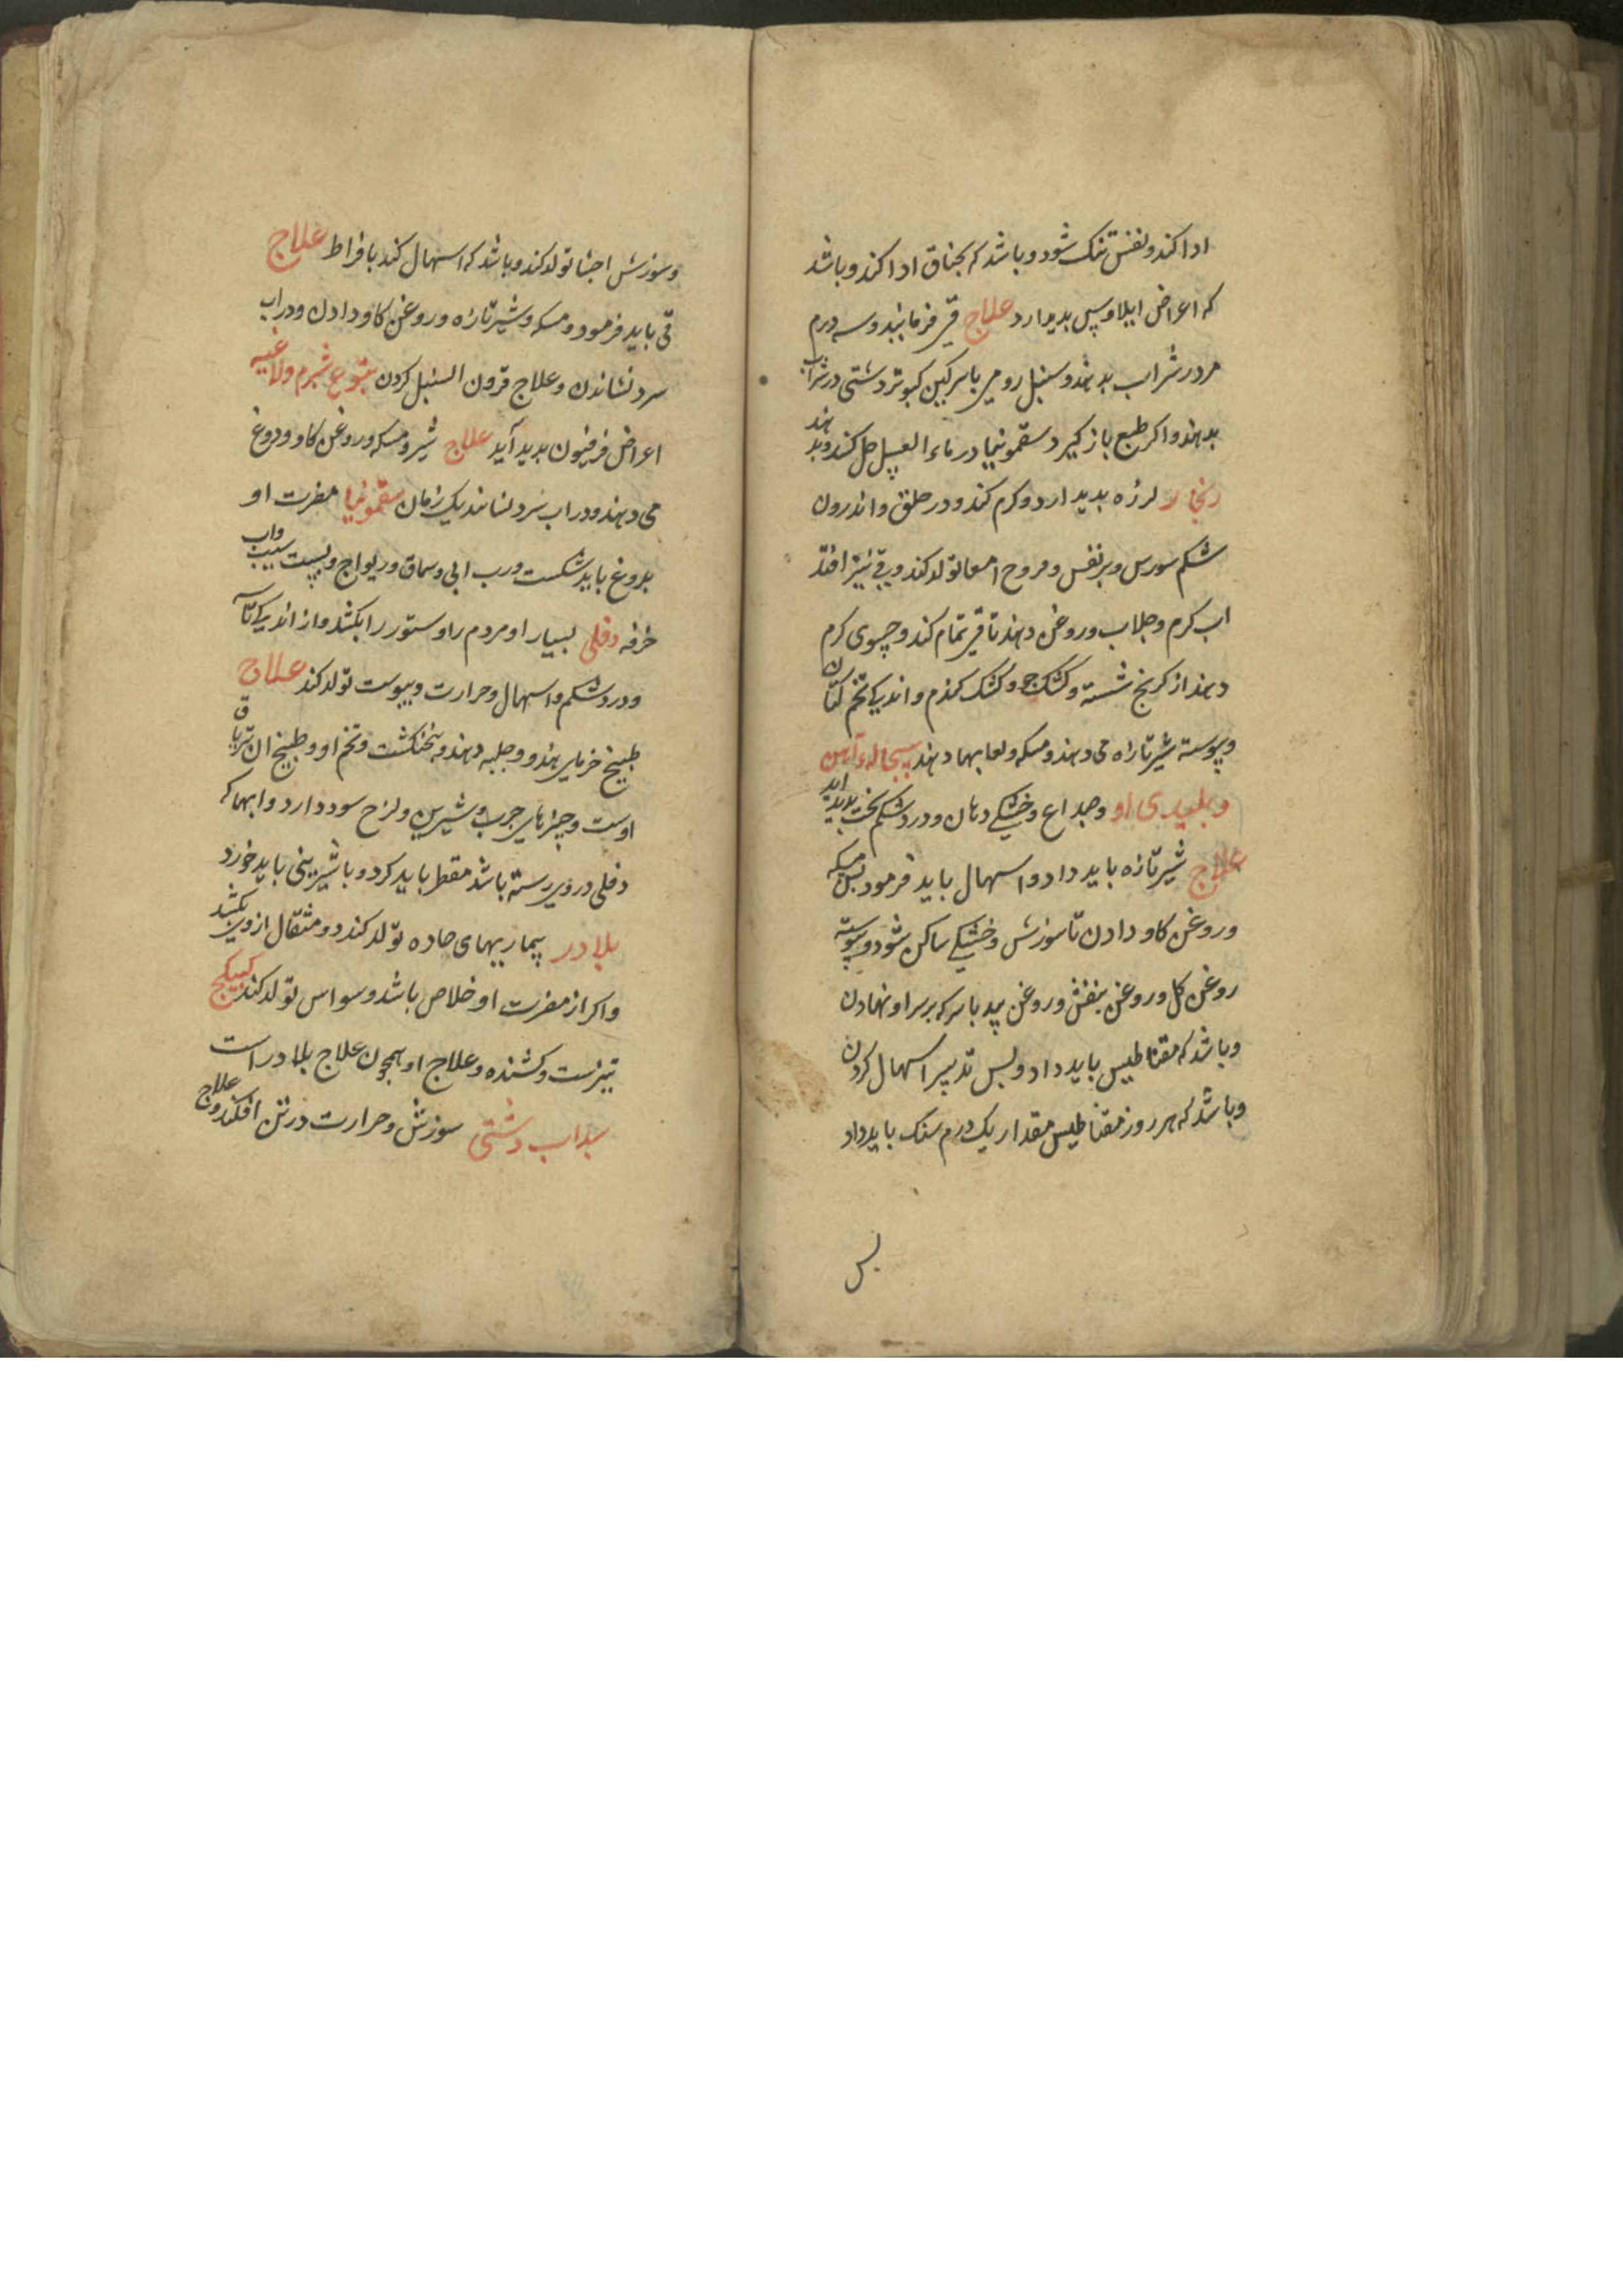 ادا کند و نفس تنک شود و باشد که بخناق ادا کند و باشد
که اعراض ایلاوس پدیدارد علاج قی فرمایند و سه درم
مر در شراب بدهند و سنبل رومی با سرکین کبوتر دشتی در شراب
بدهند و اکر طبع باز کیرد سقمونیا در ماء العسل حل کنند و بدهند
زنجار لرزه بدید ارد و کرم کند و در حلق و اندرون
شکم سورس و بر نفس و قروح امعا تولد کند و قی نیز افتد
اب کرم و جلاب و روغن دهند تا قی تمام کند و حسوی کرم
دهند از کرنج شسته و کشک جو و کشک کندم و اندکی تخم کتان
و پیوسته شیر تازه می دهند و مسکه و لعابهها دهند سحاله آهن
و پلیدی او و صداع و خشکی دهان و درد شکم سخت بدید اید
علاج شیر تازه باید داد و اسهال باید فرمود بس مسکه
و روغن کاو دادن تا سوزش و خشکی ساکن شود و پیوسته
روغن کل و روغن بنفش و روغن بید با سرکه بر سر او نهادن
و باشد که مقناطیس باید داد و بس تدبیر اسهال کردن
و باشد که هر روز مقناطیس مقدار یک درم سنک باید داد
بس
و سوزش احشا تولد کند و باشد که اسهال کند بافراط علاج
قی باید فرمود و مسکه و شیر تازه و روغن کاو دادن و در اب
سرد نشاندن و علاج قرون السنبل کردن یتوع شبرم و لاغیه
اعراض فرفیون بدید آید علاج شیر و مسکه و روغن کاو و دوغ
می دهند و در اب سرد نشانند یک زمان سقمونیا مضرت او
بدوغ باید شکست و رب ابی و سماق و ریواج و پست سیب و اب
خرفه دفلی بسیار او مردم را و ستور را بکشد و از اندکی تا
و درد شکم و اسهال و حرارت و یبوست تولد کند علاج
طبیخ خرمای هندو و حلبه دهند و پنجنکشت و تخم او و طبیخ ان تریاق
اوست و چیزهای جرب و شیرین و لزج سود دارد و ابها که
دفلی در وی رسته باشد مقطر باید کرد و با شیرینی باید خورد
بلادر بیماریهای حاده تولد کند دو مثقال از وی بکشد
و اکر از مضرت او خلاص باشد وسواس تولد کند کبیکج
تیزست و کشنده و علاج او همچون علاج بلادر است
سداب دشتی سوزش و حرارت در تن افکند و علاج